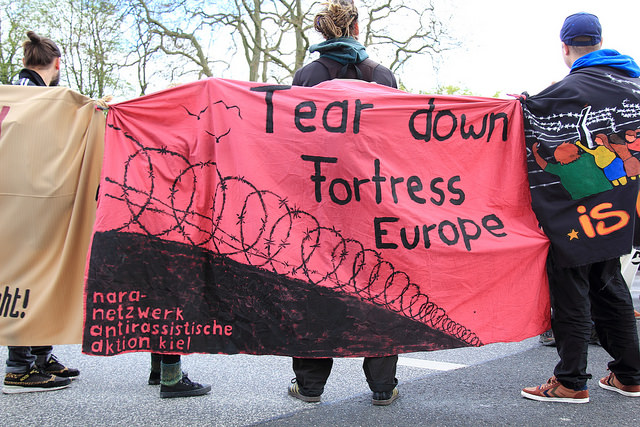 Tear down
Fortress
Europe
nara-
netzwerk
antirassistische
aktion kiel
ht!
is